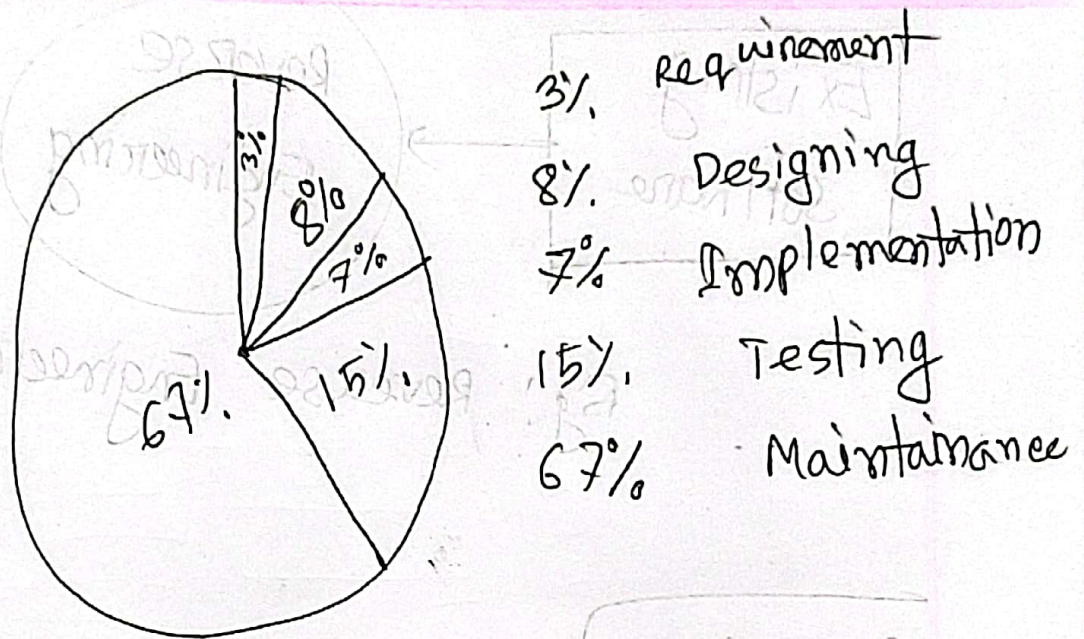 3%
8%
7%
15%.
67%.
3%. Requirement
8%. Designing
7% Implementation
15%. Testing
67% Maintainance